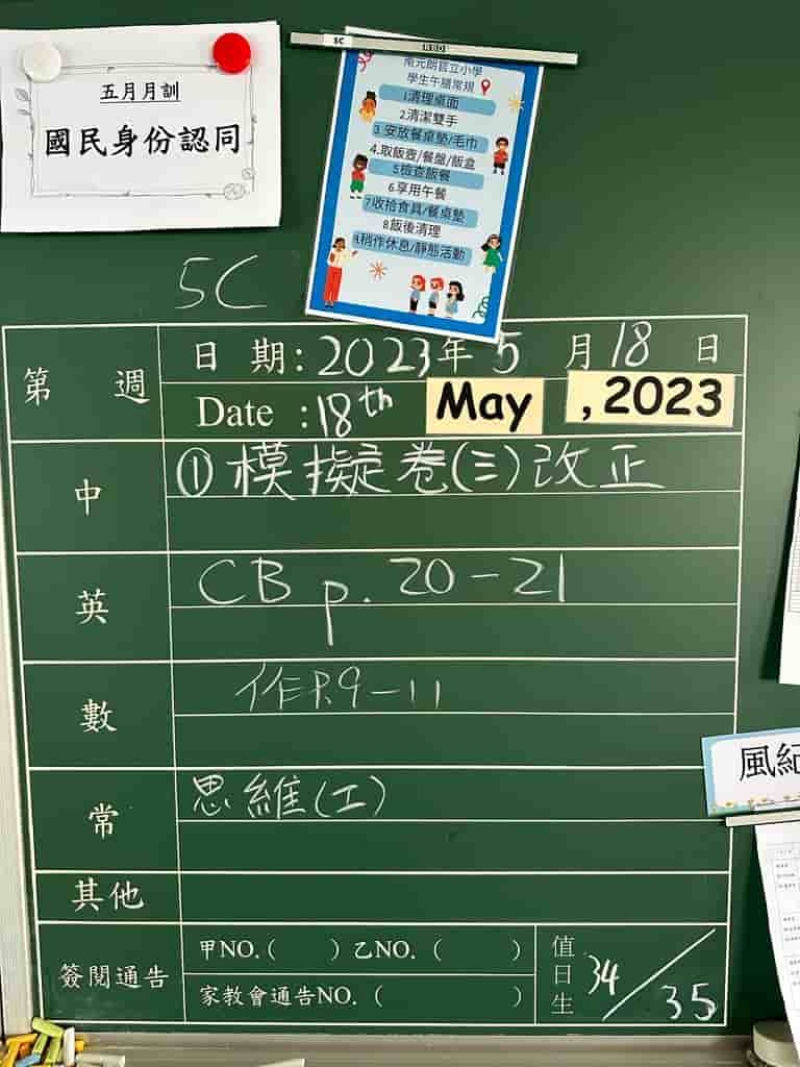 五月月訓
國民身份認同
5C
南元朗官立小學
學生午膳常規
1.清理桌面
2.清潔雙手
3.安放餐桌墊/毛巾
4.取飯壺/餐盤/飯盒
5.檢查飯餐
6.享用午餐
7.收拾食具/餐桌墊
8.飯後清理
9.稍作休息/靜態活動
5C
第 週
日 期:2023年 5 月 18 日
Date :18th May ,2023
中
①模擬卷(三)改正
英
CB p. 20-21
數
作P.9-11
常
思維(工)
其他
簽閱通告
甲NO.( ) 乙NO. ( )
家教會通告NO. ( )
值日生
34/35
風紀